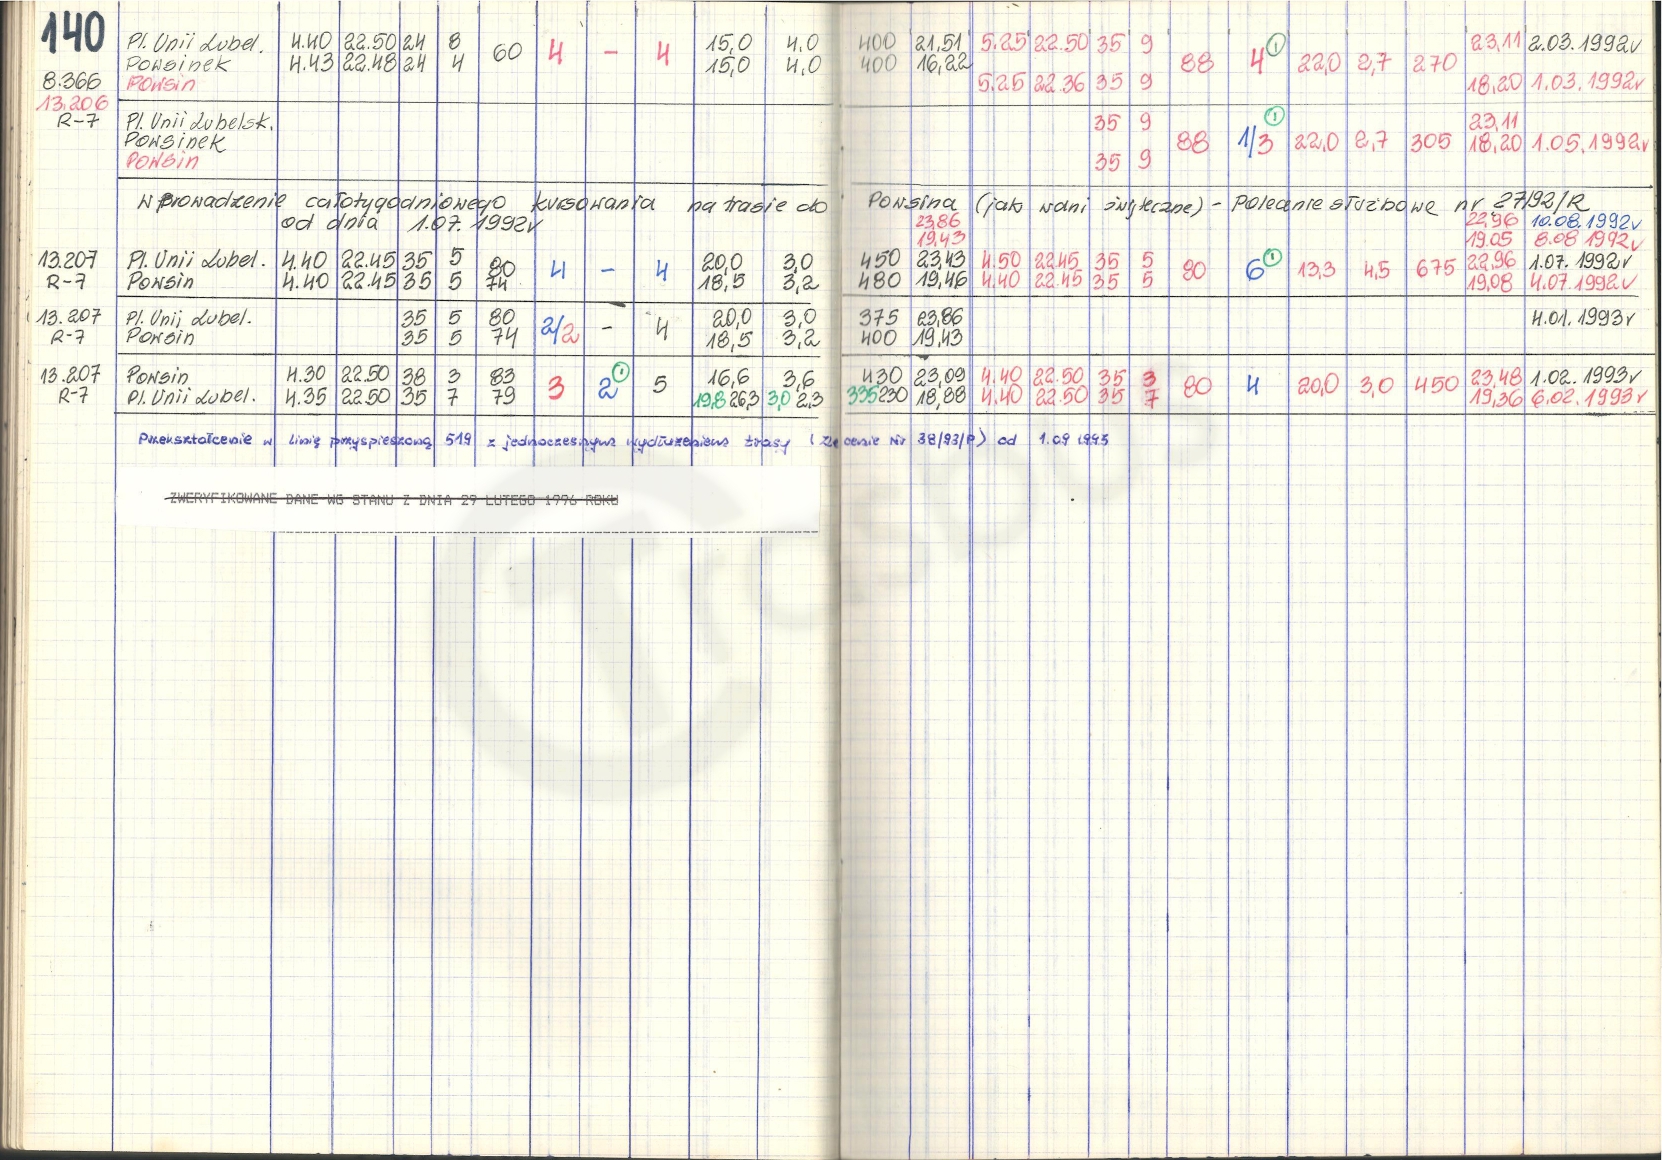 140 Pl. Unii Lubel. 4.40 22.50 24 8 60 4 – 4 15,0 4,0 400 21,51 5.25 22.50 35 9 88 4 ① 22,0 2,7 270 23,11 2.03.1992r
Powsinek 4.43 22.48 24 4 15,0 4,0 400 16,22
8.366 Powsin 5.25 22.36 35 9 18,20 1.03.1992r
13.206
R-7 Pl. Unii Lubelsk. 35 9 88 1/3 ① 22,0 2,7 305 23,11
Powsinek 18,20 1.05.1992r
Powsin 35 9
Wprowadzenie całotygodniowego kursowania na trasie do Powsina (jak w dni świąteczne) – Polecenie służbowe nr 27/92/R
od dnia 1.07.1992r 23,86 22,96 10.08.1992r
19,43 19,05 8.08 1992r
13.207 Pl. Unii Lubel. 4.40 22.45 35 5 80 4 – 4 20,0 3,0 450 23,43 4.50 22.45 35 5 80 6 ① 13,3 4,5 675 22,96 1.07.1992r
R-7 Powsin 4.40 22.45 35 5 74 18,5 3,2 480 19,46 4.40 22.45 35 5 19,08 4.07.1992r
13.207 Pl. Unii Lubel. 35 5 80 2/2 – 4 20,0 3,0 375 23,86 4.01.1993r
R-7 Powsin 35 5 74 18,5 3,2 400 19,43
13.207 Powsin 4.30 22.50 38 3 83 3 2 ① 5 16,6 3,6 430 23,09 4.40 22.50 35 3 80 4 20,0 3,0 450 23,48 1.02.1993r
R-7 Pl. Unii Lubel. 4.35 22.50 35 7 79 19,8 26,3 3,0 2,3 335 230 18,88 4.40 22.50 35 7 19,36 6.02.1993r
Przekształcenie w linię przyspieszoną 519 z jednoczesnym wydłużeniem trasy (Zlecenie Nr 38/93/P) od 1.09 1993
ZWERYFIKOWANE DANE WG STANU Z DNIA 29 LUTEGO 1996 ROKU
Trasbus